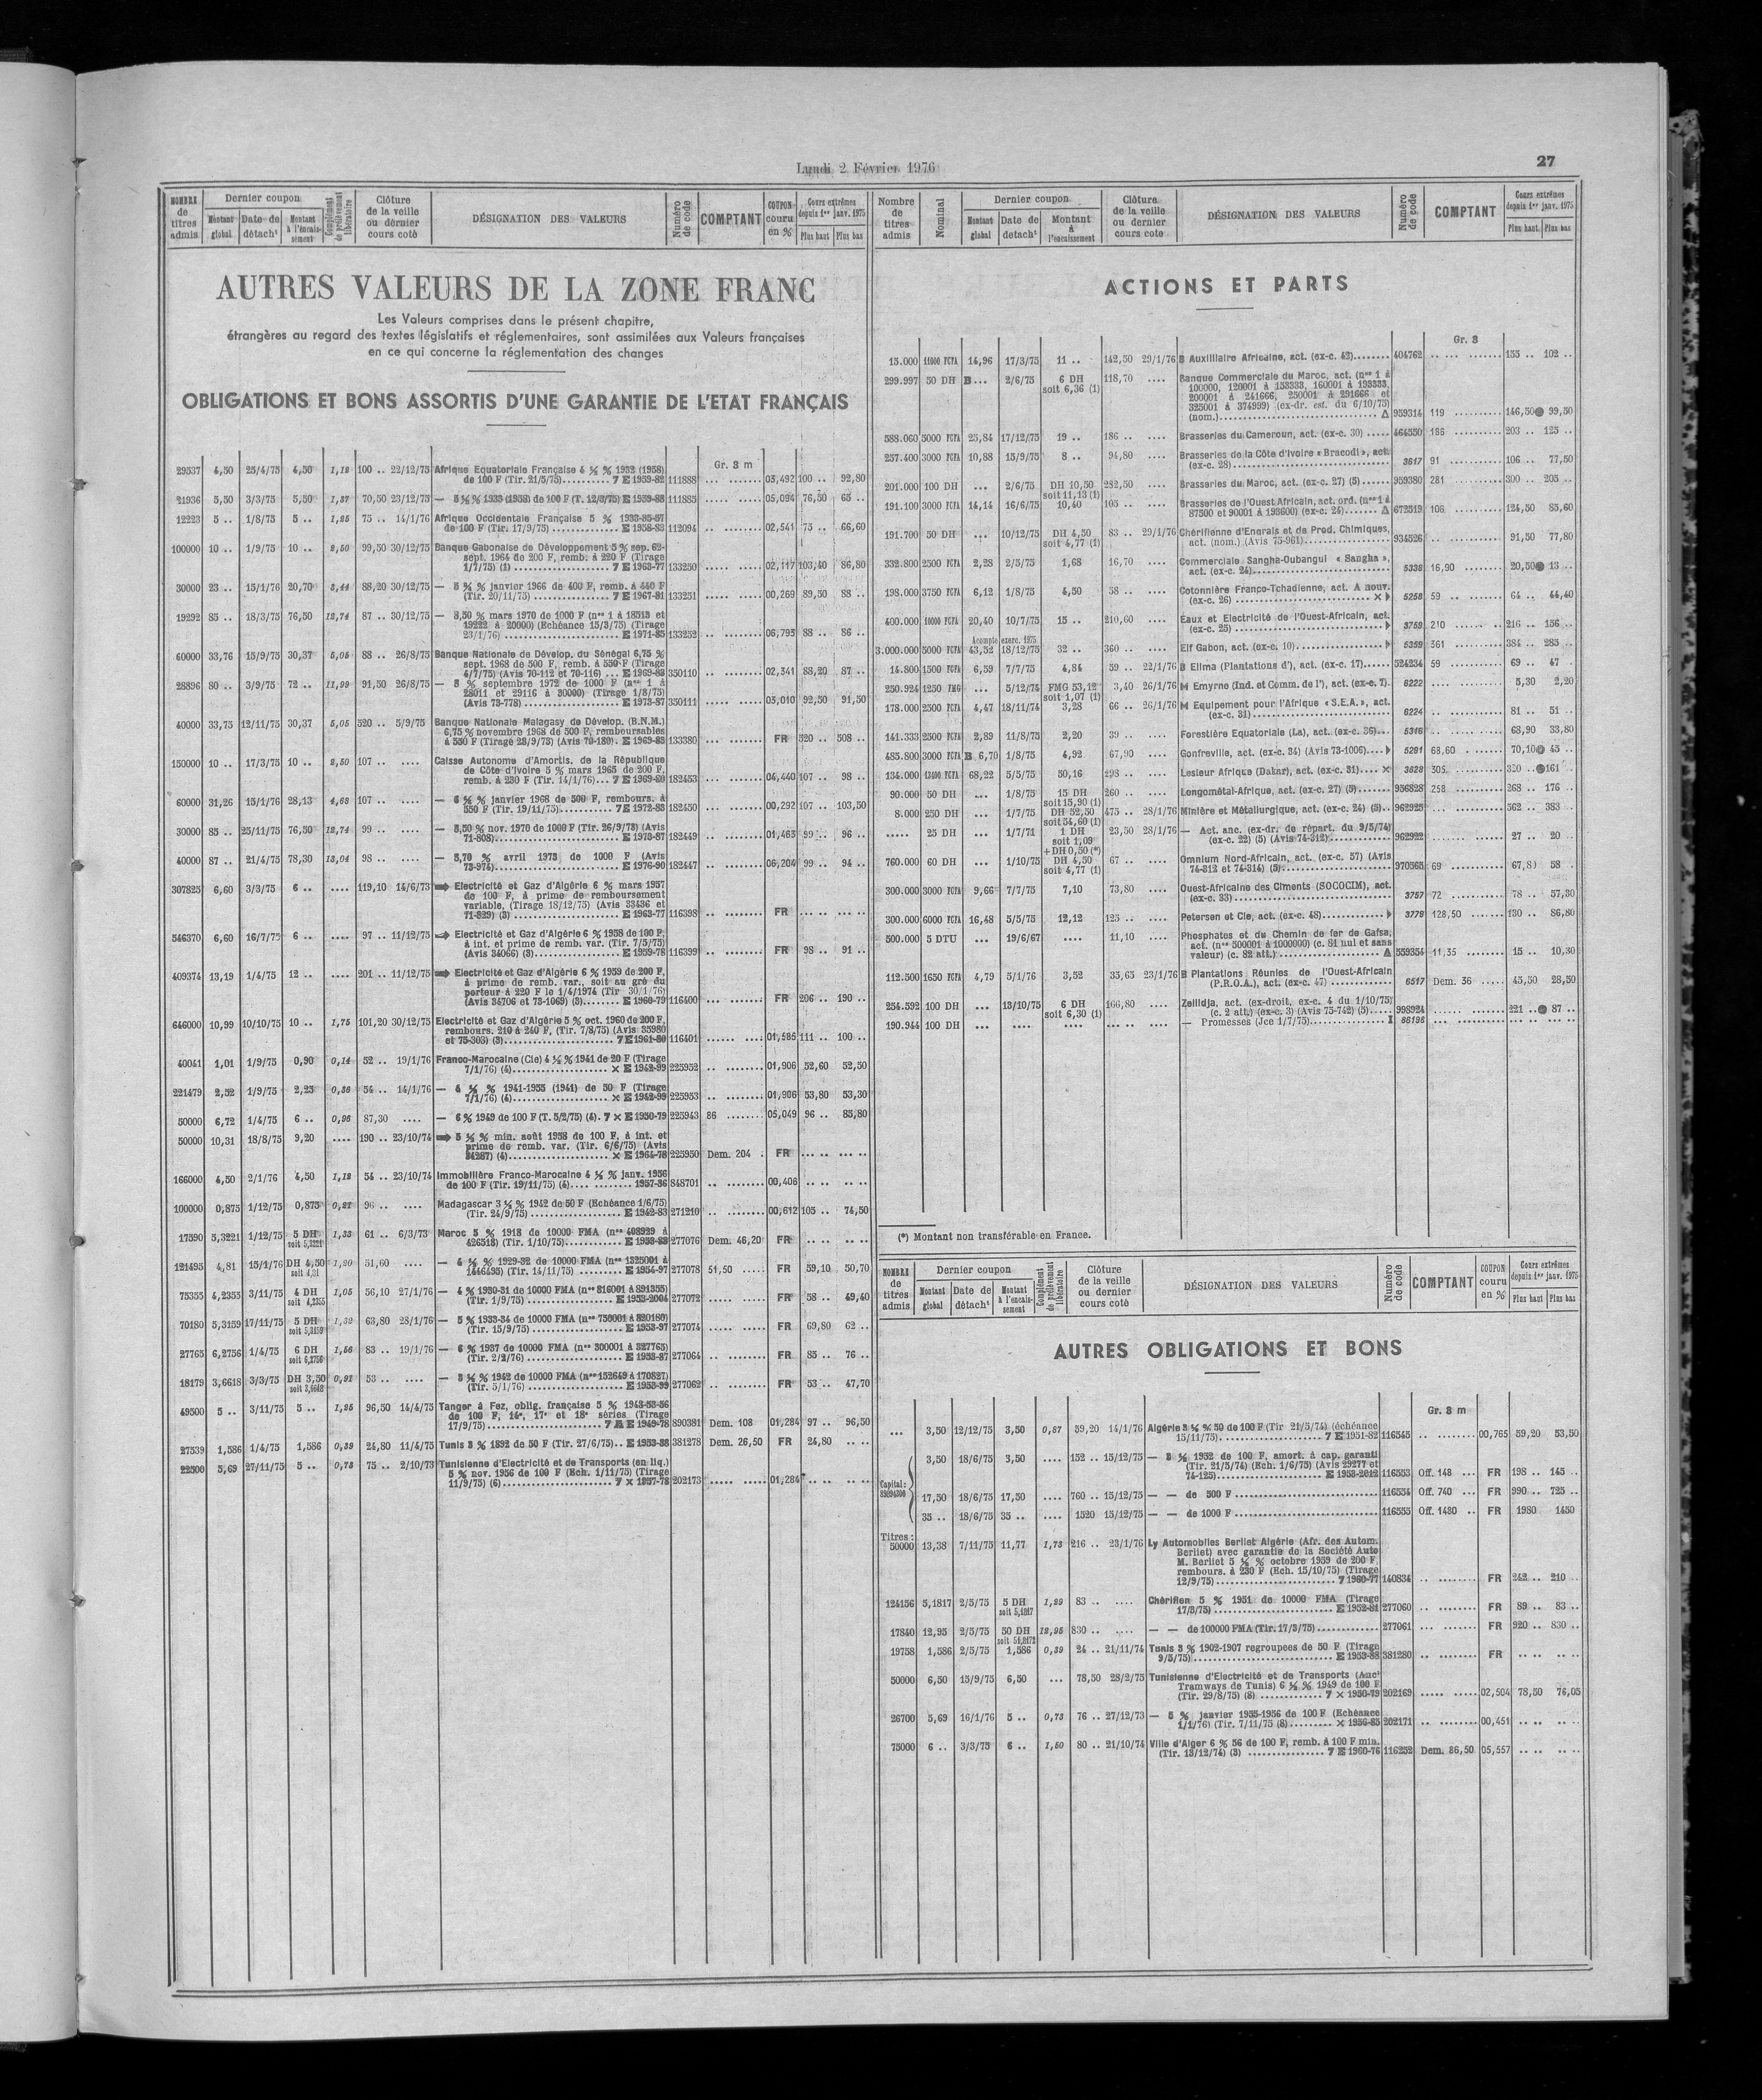 Lundi 2 Février 1976
27
NOMBRE de titres admis | Dernier coupon | Montant global | Date de détach^t | Montant à l'encaissement | Complément de prélèvement libératoire | Clôture de la veille ou dernier cours coté | DÉSIGNATION DES VALEURS | Numéro de code | COMPTANT | COUPON couru en % | Cours extrêmes depuis 1er janv. 1975 | Plus haut | Plus bas
AUTRES VALEURS DE LA ZONE FRANC
Les Valeurs comprises dans le présent chapitre,
étrangères au regard des textes législatifs et réglementaires, sont assimilées aux Valeurs françaises
en ce qui concerne la réglementation des changes
OBLIGATIONS ET BONS ASSORTIS D'UNE GARANTIE DE L'ETAT FRANÇAIS
Gr. 3 m
29537 4,50 25/4/75 4,50 1,18 100 .. 22/12/75 Afrique Equatoriale Française 4 ½ % 1932 (1958)
de 100 F (Tir. 21/5/75) 7 E 1959-82 111888 03,492 100 .. 92,80
21936 5,50 3/3/75 5,50 1,37 70,50 23/12/75 — 5 ½ % 1933 (1958) de 100 F (T. 12/2/75) E 1959-88 111885 05,094 76,50 65 ..
12223 5 .. 1/8/75 5 .. 1,25 75 .. 14/1/76 Afrique Occidentale Française 5 % 1933-35-57
de 100 F (Tir. 17/9/75) E 1958-83 112094 02,541 75 .. 66,60
100000 10 .. 1/9/75 10 .. 2,50 99,50 30/12/75 Banque Gabonaise de Développement 5 % sep. 62-
sept. 1964 de 200 F, remb. à 220 F (Tirage
1/7/75) (1) 7 E 1963-77 133250 02,117 103,40 86,80
30000 23 .. 15/1/76 20,70 3,44 88,20 30/12/75 — 5 ¾ % janvier 1966 de 400 F, remb. à 440 F
(Tir. 20/11/75) 7 E 1967-81 133251 00,269 89,50 88 ..
19292 85 .. 18/3/75 76,50 12,74 87 .. 30/12/75 — 8,50 % mars 1970 de 1000 F (nos 1 à 18513 et
19222 à 20000) (Echéance 15/3/75) (Tirage
23/1/76) E 1971-85 133252 06,793 88 .. 86 ..
60000 33,76 15/9/75 30,37 5,05 88 .. 26/8/75 Banque Nationale de Dévelop. du Sénégal 6,75 %
sept. 1968 de 500 F, remb. à 550 F (Tirage
4/7/75) (Avis 70-112 et 70-116) E 1969-83 350110 02,341 88,20 87 ..
28896 80 .. 3/9/75 72 .. 11,99 91,50 26/8/75 — 8 % septembre 1972 de 1000 F (nos 1 à
28011 et 29116 à 30000) (Tirage 1/8/75)
(Avis 73-778) E 1973-87 350111 03,010 92,50 91,50
40000 33,75 12/11/75 30,37 5,05 520 .. 5/9/75 Banque Nationale Malagasy de Dévelop. (B.N.M.)
6,75 % novembre 1968 de 500 F, remboursables
à 550 F (Tirage 23/9/75) (Avis 70-180) E 1969-83 133380 FR 520 .. 508 ..
150000 10 .. 17/3/75 10 .. 2,50 107 .. Caisse Autonome d'Amortis. de la République
de Côte d'Ivoire 5 % mars 1965 de 200 F,
remb. à 230 F (Tir. 14/1/76) 7 E 1969-80 182453 04,440 107 .. 98 ..
60000 31,26 15/1/76 28,13 4,68 107 .. — 6 ¼ % janvier 1968 de 500 F, rembours. à
550 F (Tir. 19/11/75) 7 E 1972-83 182450 00,292 107 .. 103,50
30000 85 .. 25/11/75 76,50 12,74 99 .. — 8,50 % nov. 1970 de 1000 F (Tir. 26/9/75) (Avis
71-808) E 1973-87 182449 01,463 99 .. 96 ..
40000 87 .. 21/4/75 78,30 13,04 98 .. — 8,70 % avril 1973 de 1000 F (Avis
73-974) E 1976-90 182447 06,204 99 .. 94 ..
307825 6,60 3/3/75 6 .. 119,10 14/6/73 Electricité et Gaz d'Algérie 6 % mars 1957
de 100 F, à prime de remboursement
variable, (Tirage 18/12/75) (Avis 33436 et
71-829) (3) E 1963-77 116398 FR
546370 6,60 16/7/75 6 .. 97 .. 11/12/75 Electricité et Gaz d'Algérie 6 % 1958 de 100 F,
à int. et prime de remb. var. (Tir. 7/5/75)
(Avis 34066) (3) E 1959-78 116399 FR 98 .. 91 ..
409374 13,19 1/4/75 12 .. 201 .. 11/12/75 Electricité et Gaz d'Algérie 6 % 1959 de 200 F,
à prime de remb. var., soit au gré du
porteur à 220 F le 1/4/1974 (Tir 30/1/76)
(Avis 34706 et 73-1069) (3) E 1960-79 116400 FR 206 .. 190 ..
646000 10,99 10/10/75 10 .. 1,75 101,20 30/12/75 Electricité et Gaz d'Algérie 5 % oct. 1960 de 200 F,
rembours. 210 à 240 F, (Tir. 7/8/75) (Avis 35980
et 75-303) (3) 7 E 1961-80 116401 01,585 111 .. 100 ..
40041 1,01 1/9/75 0,90 0,14 52 .. 19/1/76 Franco-Marocaine (Cie) 4 ½ % 1941 de 20 F (Tirage
7/1/76) (4) × E 1942-99 225952 01,906 52,60 52,50
221479 2,52 1/9/75 2,25 0,36 54 .. 14/1/76 — 4 ½ % 1941-1955 (1941) de 50 F (Tirage
7/1/76) (4) × E 1942-99 225953 01,906 53,80 53,30
50000 6,72 1/4/75 6 .. 0,96 87,30 — 6 % 1949 de 100 F (T. 5/2/75) (4). 7 × E 1950-79 225943 86 05,049 96 .. 85,80
50000 10,31 18/8/75 9,20 190 .. 23/10/74 5 ½ % min. août 1958 de 100 F, à int. et
prime de remb. var. (Tir. 6/6/75) (Avis
34287) (4) × E 1964-78 225950 Dem. 204 FR
166000 4,50 2/1/76 4,50 1,12 54 .. 23/10/74 Immobilière Franco-Marocaine 4 ½ % janv. 1956
de 100 F (Tir. 19/11/75) (4) 1957-86 848701 00,406
100000 0,875 1/12/75 0,875 0,21 96 .. Madagascar 3 ½ % 1942 de 50 F (Echéance 1/6/75)
(Tir. 24/9/75) E 1942-83 271210 00,612 105 .. 74,50
17590 5,3221 1/12/75 5 DH soit 5,3221 1,33 61 .. 6/3/73 Maroc 5 % 1918 de 10000 FMA (nos 408929 à
426518) (Tir. 1/10/75) E 1953-88 277076 Dem. 46,20 FR
121495 4,81 15/1/76 DH 4,50 soit 4,81 1,20 51,60 — 4 ½ % 1929-52 de 10000 FMA (nos 1325001 à
1446495) (Tir. 14/11/75) E 1954-97 277078 51,50 FR 59,10 50,70
75355 4,2355 3/11/75 4 DH soit 4,2355 1,05 56,10 27/1/76 — 4 % 1930-31 de 10000 FMA (nos 816001 à 891355)
(Tir. 1/9/75) E 1953-2004 277072 FR 58 .. 49,40
70180 5,3159 17/11/75 5 DH soit 5,3159 1,32 63,80 28/1/76 — 5 % 1933-34 de 10000 FMA (nos 750001 à 820180)
(Tir. 15/9/75) E 1953-97 277074 FR 69,80 62 ..
27765 6,2756 1/4/75 6 DH soit 6,2756 1,56 83 .. 19/1/76 — 6 % 1937 de 10000 FMA (nos 300001 à 327765)
(Tir. 2/2/76) E 1953-87 277064 FR 85 .. 76 ..
18179 3,6618 3/3/75 DH 3,50 soit 3,6618 0,91 53 .. — 3 ½ % 1942 de 10000 FMA (nos 152649 à 170827)
(Tir. 5/1/76) E 1953-99 277062 FR 53 .. 47,70
49500 5 .. 3/11/75 5 .. 1,25 96,50 14/4/75 Tanger à Fez, oblig. française 5 % 1948-53-56
de 100 F, 14e, 17e et 18e séries (Tirage
17/9/75) E 1949-78 890381 Dem. 108 01,284 97 .. 96,50
27539 1,586 1/4/75 1,586 0,39 24,80 11/4/75 Tunis 3 % 1892 de 50 F (Tir. 27/6/75) E 1953-88 381278 Dem. 26,50 FR 24,80
22500 5,69 27/11/75 5 .. 0,73 75 .. 2/10/73 Tunisienne d'Electricité et de Transports (en liq.)
5 % nov. 1956 de 100 F (Ech. 1/11/75) (Tirage
11/9/75) (6) 7 × 1957-78 202173 01,284
Nombre de titres admis | Nominal | Dernier coupon | Montant global | Date de detach^t | Montant à l'encaissement | Clôture de la veille ou dernier cours cote | DÉSIGNATION DES VALEURS | Numéro de code | COMPTANT | Cours extrêmes depuis 1er janv. 1975 | Plus haut | Plus bas
ACTIONS ET PARTS
Gr. 3
15.000 11000 FCFA 14,96 17/3/75 11 .. 142,50 29/1/76 B Auxiliaire Africaine, act. (ex-c. 42) 404762 155 .. 102 ..
299.997 50 DH B ... 2/6/75 6 DH soit 6,36 (1) 118,70 Banque Commerciale du Maroc, act. (nos 1 à
100000, 120001 à 153333, 160001 à 193333,
200001 à 241666, 250001 à 291666 et
325001 à 374999) (ex-dr. est. du 6/10/75)
(nom.) Δ 959314 119 146,50 ● 99,50
588.060 5000 FCFA 25,84 17/12/75 19 .. 186 .. Brasseries du Cameroun, act. (ex-c. 30) 464550 186 203 .. 125 ..
257.400 3000 FCFA 10,88 15/9/75 8 .. 94,80 Brasseries de la Côte d'Ivoire « Bracodi », act.
(ex-c. 28) 3617 91 106 .. 77,50
201.000 100 DH ... 2/6/75 DH 10,50 soit 11,13 (1) 282,50 Brasseries du Maroc, act. (ex-c. 27) (5) 959380 281 300 .. 205 ..
191.100 3000 FCFA 14,14 16/6/75 10,40 105 .. Brasseries de l'Ouest Africain, act. ord. (nos 1 à
87500 et 90001 à 193600) (ex-c. 24) Δ 672519 106 124,50 85,60
191.700 50 DH ... 10/12/75 DH 4,50 soit 4,77 (1) 83 .. 29/1/76 Chérifienne d'Engrais et de Prod. Chimiques,
act. (nom.) (Avis 75-961) 934526 91,50 77,80
332.800 2500 FCFA 2,28 2/5/75 1,68 16,70 Commerciale Sangha-Oubangui « Sangha »,
act. (ex-c. 24) 5336 16,90 20,50 ● 13 ..
198.000 3750 FCFA 6,12 1/8/75 4,50 58 .. Cotonnière Franco-Tchadienne, act. A nouv.
(ex-c. 26) × 5258 59 .. 64 .. 44,40
400.000 10000 FCFA 20,40 10/7/75 15 .. 210,60 Eaux et Electricité de l'Ouest-Africain, act.
(ex-c. 25) 3759 210 216 .. 156 ..
Acompte exerc. 1975
3.000.000 5000 FCFA 43,52 18/12/75 32 .. 360 .. Elf Gabon, act. (ex-c. 10) 5359 361 384 .. 285 ..
14.800 1500 FCFA 6,59 7/7/75 4,84 59 .. 22/1/76 B Elima (Plantations d'), act. (ex-c. 17) 524234 59 69 .. 47 ..
250.924 1250 FMG ... 5/12/74 FMG 53,12 soit 1,07 (1) 3,40 26/1/76 M Emyrne (Ind. et Comm. de l'), act. (ex-c. 7). 6222 5,30 2,20
178.000 2500 FCFA 4,47 18/11/74 3,28 66 .. 26/1/76 M Equipement pour l'Afrique « S.E.A. », act.
(ex-c. 31) 6224 81 .. 51 ..
141.333 2500 FCFA 2,89 11/8/75 2,20 39 .. Forestière Equatoriale (La), act. (ex-c. 36) 5316 68,90 33,80
485.800 3000 FCFA B 6,70 1/8/75 4,92 67,90 Gonfreville, act. (ex-c. 34) (Avis 73-1006) 5291 68,60 70,10 ● 45 ..
134.000 13400 FCFA 68,22 5/5/75 50,16 298 .. Lesieur Afrique (Dakar), act. (ex-c. 31) × 3628 305 320 .. ● 161
90.000 50 DH ... 1/8/75 15 DH soit 15,90 (1) 260 .. Longométal-Afrique, act. (ex-c. 27) (5) 956828 258 268 .. 176 ..
8.000 250 DH ... 1/7/75 DH 52,50 soit 54,60 (1) 475 .. 28/1/76 Minière et Métallurgique, act. (ex-c. 24) (5) 962925 562 .. 383 ..
..... 25 DH ... 1/7/71 1 DH soit 1,09 + DH 0,50 (*) 23,50 28/1/76 — Act. anc. (ex-dr. de répart. du 9/5/74)
(ex-c. 22) (5) (Avis 74-312) 962922 27 .. 20 ..
760.000 60 DH ... 1/10/75 DH 4,50 soit 4,77 (1) 67 .. Omnium Nord-Africain, act. (ex-c. 57) (Avis
74-312 et 74-314) (5) 970565 69 67,80 58 ..
300.000 3000 FCFA 9,66 7/7/75 7,10 73,80 Ouest-Africaine des Ciments (SOCOCIM), act.
(ex-c. 33) 3757 72 78 .. 57,30
300.000 6000 FCFA 16,48 5/5/75 12,12 125 .. Petersen et Cie, act. (ex-c. 48) 3778 128,50 130 .. 86,80
500.000 5 DTU ... 19/6/67 .... 11,10 Phosphates et du Chemin de fer de Gafsa,
act. (nos 500001 à 1000000) (c. 81 nul et sans
valeur) (c. 82 att.) Δ 559354 11,35 15 .. 10,30
112.500 1650 FCFA 4,79 5/1/76 3,52 35,65 23/1/76 B Plantations Réunies de l'Ouest-Africain
(P.R.O.A.), act. (ex-c. 47) 6517 Dem. 36 45,50 28,50
254.592 100 DH ... 13/10/75 6 DH soit 6,30 (1) 166,80 Zellidja, act. (ex-droit, ex-c. 4 du 1/10/75)
(c. 2 att.) (ex-c. 3) (Avis 75-742) (5) 998924 221 .. ● 87 ..
190.944 100 DH — Promesses (Jce 1/7/75) 86196
(*) Montant non transférable en France.
NOMBRE de titres admis | Dernier coupon | Montant global | Date de détach^t | Montant à l'encaissement | Complément de prélèvement libératoire | Clôture de la veille ou dernier cours coté | DÉSIGNATION DES VALEURS | Numéro de code | COMPTANT | COUPON couru en % | Cours extrêmes depuis 1er janv. 1975 | Plus haut | Plus bas
AUTRES OBLIGATIONS ET BONS
Gr. 3 m
... 3,50 12/12/75 3,50 0,87 59,20 14/1/76 Algérie 3 ½ % 50 de 100 F (Tir 21/5/74) (échéance
15/11/75) 7 E 1951-82 116545 00,765 59,20 53,50
Capital:
3,50 18/6/75 3,50 .... 152 .. 15/12/75 — 3 ½ 1952 de 100 F, amort. à cap. garanti
(Tir. 21/5/74) (Ech. 1/6/75) (Avis 29277 et
74-125) E 1958-2012 116553 Off. 148 FR 198 .. 145 ..
17,50 18/6/75 17,50 .... 760 .. 15/12/75 — — de 500 F 116554 Off. 740 FR 990 .. 725 ..
35 .. 18/6/75 35 .. .... 1520 15/12/75 — — de 1000 F 116555 Off. 1480 FR 1980 1450
Titres:
50000 13,38 7/11/75 11,77 1,73 216 .. 23/1/76 Ly Automobiles Berliet Algérie (Afr. des Autom.
Berliet) avec garantie de la Société Auto
M. Berliet 5 ½ % octobre 1959 de 200 F,
rembours. à 230 F (Ech. 15/10/75) (Tirage
12/9/75) 7 1960-77 140834 FR 242 .. 210 ..
124156 5,1817 2/5/75 5 DH soit 5,1817 1,29 83 .. Chérifien 5 % 1951 de 10000 FMA (Tirage
17/3/75) E 1952-81 277060 FR 89 .. 83 ..
17840 12,95 2/5/75 50 DH 12,95 830 .. — — de 100000 FMA (Tir. 17/3/75) 277061 FR 920 .. 830 ..
19758 1,586 2/5/75 1,586 0,39 24 .. 21/11/74 Tunis 3 % 1902-1907 regroupées de 50 F (Tirage
9/5/75) E 1953-88 381280 FR
50000 6,50 15/9/75 6,50 ... 78,50 28/2/75 Tunisienne d'Electricité et de Transports (Anct
Tramways de Tunis) 6 ½ % 1949 de 100 F
(Tir. 29/8/75) (8) 7 × 1950-79 202169 02,504 78,50 76,05
26700 5,69 16/1/76 5 .. 0,73 76 .. 27/12/73 — 5 % janvier 1955-1956 de 100 F (Echéance
1/1/76) (Tir. 7/11/75 (8) × 1956-85 202171 00,451
75000 6 .. 3/3/75 6 .. 1,50 80 .. 21/10/74 Ville d'Alger 6 % 56 de 100 F, remb. à 100 F min.
(Tir. 13/12/74) (3) 7 E 1960-76 116252 Dem. 86,50 05,557